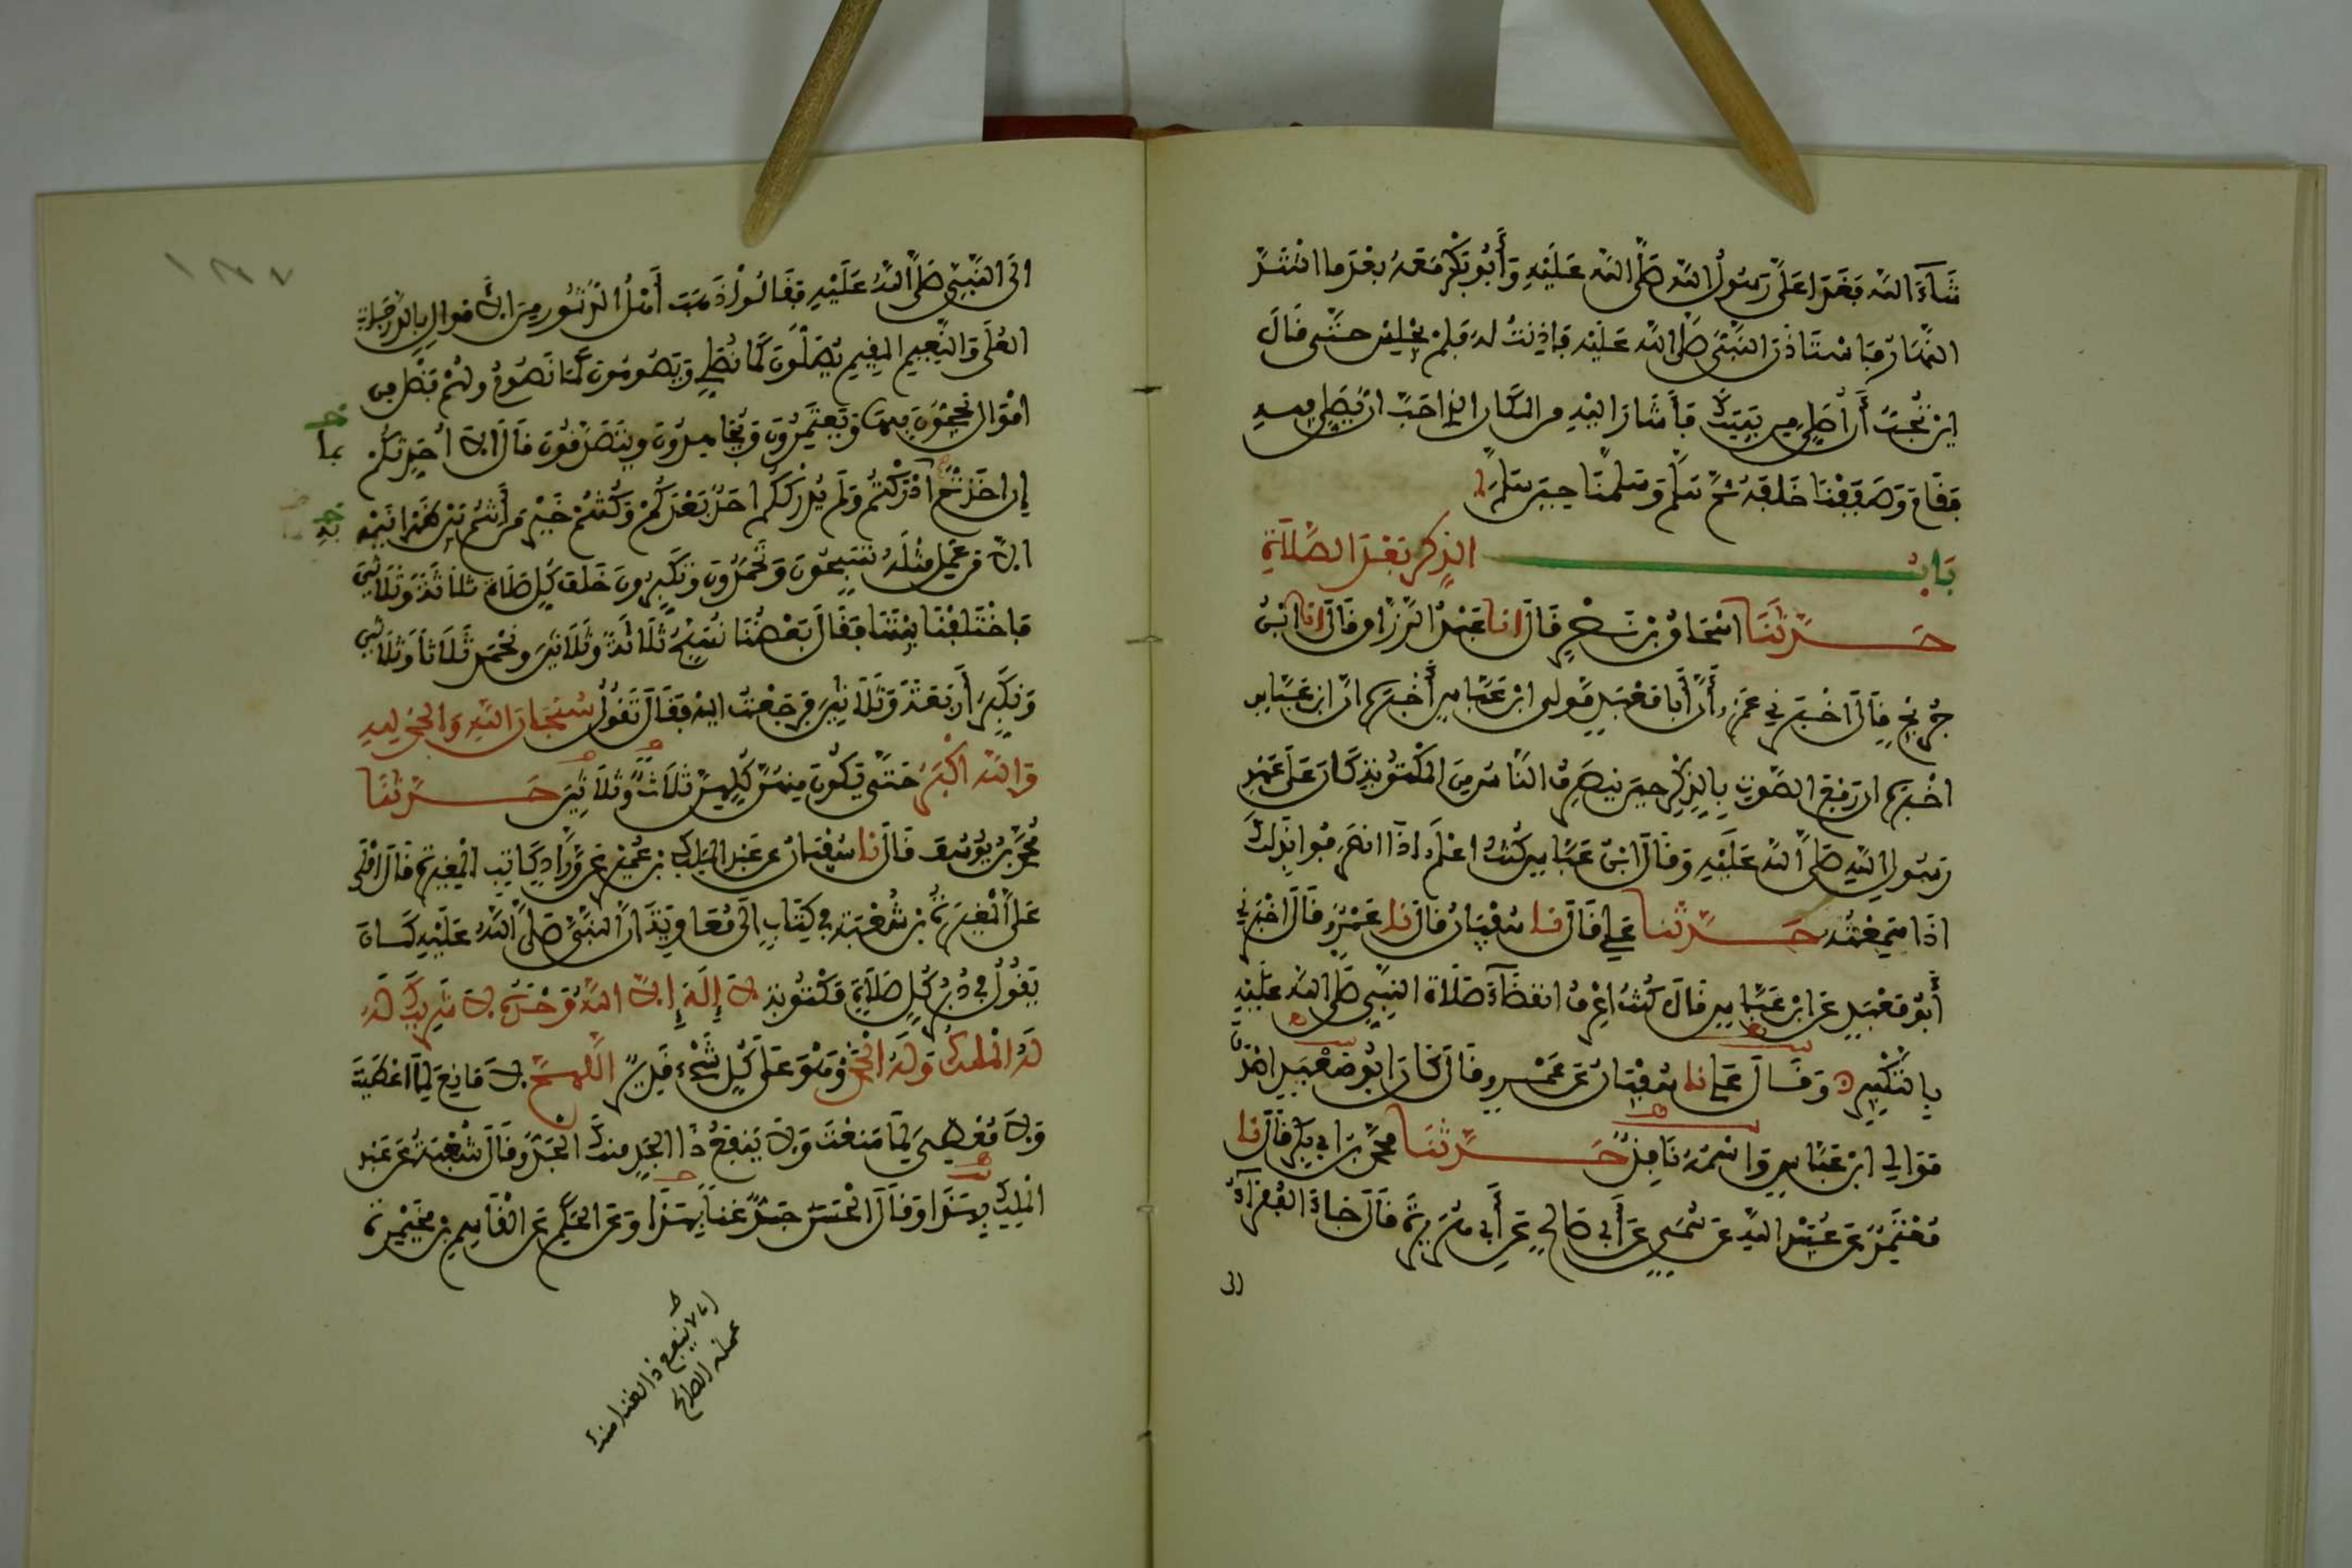 شَاءَ اللَّه فَغَدَا عَلَيَّ رَسُولُ اللَّهِ صَلَّى اللَّه عَلَيْهِ وَأَبُو بَكْرٍ مَعَهُ بَعْدَ مَا اشْتَدَّ
النَّهَارُ فَاسْتَاذَنَ النَّبِيُّ صَلَّى اللَّه عَلَيْهِ فَاذِنْتُ لَهُ فَلَمْ يَجْلِسْ حَتَّى قَالَ
ايْنَ تُحِبُّ أَنْ أُصَلِّيَ مِن بَيْتِكَ فَأَشَارَ اليْهِ مِنَ المَكَانِ الذِي احَبَّ انْ يُصَلِّيَ فِيهِ
فَقَامَ وَصَفَفْنَا خَلْفَهُ ثُمَّ سَلَّمَ وَسَلَّمْنَا حِينَ سَلَّمَ
بَابُ الذِّكْرِ بَعْدَ الصَّلَاةِ
حَدَّثَنَا اسْحَاقُ بْنُ نَصْرٍ قَالَ انا عَبْدُ الرَّزَّاقِ قَالَ انا ابْنُ
جُرَيْجٍ قَالَ اخْبَرَنِي عَمْرٌو أَنَّ أَبَا مَعْبَدٍ مَوْلَى ابْنِ عَبَّاسٍ أَخْبَرَهُ انَّ ابْنَ عَبَّاسٍ
اخْبَرَهُ ان رَفْعَ الصَّوْتِ بِالذِّكْرِ حِينَ يَنصَرِفُ النَّاسُ مِنَ المَكْتُوبَةِ كَانَ عَلَى عَهْدِ
رَسُولِ اللَّهِ صَلَّى اللَّه عَلَيْهِ وَقَالَ ابْنُ عَبَّاسٍ كُنْتُ اعْلَمُ اذَا انصَرَفُوا بِذَلِكَ
اذَا سَمِعْتُهُ حَدَّثَنَا عَلِي قَالَ نا سُفْيَانُ قَالَ نا عَمْرٌو قَالَ اخْبَرَنِي
أَبُو مَعْبَدٍ عَنِ ابْنِ عَبَّاسٍ قَالَ كُنْتُ اعْرِفُ انقِضَاءَ صَلَاةِ النَّبِيِّ صَلَّى اللَّه عَلَيْهِ
بِالتَّكْبِيرِ وَقَالَ عَلِي نا سُفْيَانُ عَنْ عَمْرٍو قَالَ كَانَ ابُو مَعْبَدٍ اصْدَقَ
مَوَالِي ابْنِ عَبَّاسٍ وَاسْمُهُ نَافِذٌ حَدَّثَنَا مُحَمَّدُ بْنُ ابِي بَكْرٍ قَالَ نا
مُعْتَمِرٌ عَنْ عُبَيْدِ اللَّهِ عَنْ سُمَيٍّ عَنْ أَبِي صَالِحٍ عَنْ أَبِي هُرَيْرَةَ قَالَ جَاءَ الفُقَرَاءُ
الى
الَى النَّبِيِّ صَلَّى اللَّهُ عَلَيْهِ فَقَالُوا ذَهَبَ أَهْلُ الدُّثُورِ مِنَ الأَمْوَالِ بِالدَّرَجَاتِ
العُلَى وَالنَّعِيمِ المُقِيمِ يُصَلُّونَ كَمَا نُصَلِّي وَيَصُومُونَ كَمَا نَصُومُ ولَهُمْ فَضْلٌ مِن
امْوَالٍ يَحُجُّونَ بِهَا وَيَعْتَمِرُونَ وَيُجَاهِدُونَ وَيَتَصَدَّقُونَ قَالَ الا احَدِّثُكُمْ
بما
إِن اخَذْتُمْ ادْرَكْتُمْ وَلَم يُدْرِكْكُم احَدٌ بَعْدَكُمْ وَكُنْتُمْ خَيْرَ مَن أَنْتُمْ بَيْنَ ظَهْرَانَيْهِ
به
الا مَن عَمِلَ مِثْلَهُ تُسَبِّحُونَ وَتَحْمَدُونَ وَتُكَبِّرُونَ خَلْفَ كُلِّ صَلَاةٍ ثَلَاثَةً وَثَلَاثِينَ
فَاخْتَلَفْنَا بَيْنَنَا فَقَالَ بَعْضُنَا نُسَبِّحُ ثَلَاثَةً وَثَلَاثِينَ وَنَحْمَدُ ثَلَاثاً وَثَلَاثِينَ
وَنُكَبِّرُ أَرْبَعَةً وَثَلَاثِينَ فَرَجَعْتُ اليْهِ فَقَالَ تَقُولُ سُبْحَانَ اللَّهِ وَالحَمْدُ لِلهِ
وَاللَّه اكْبَرُ حَتَّى تَكُونَ مِنْهُنَّ كُلِّهِنَّ ثَلَاثٌ وَثَلَاثِينَ حَدَّثَنَا
مُحَمَّدُ بْنُ يُوسُفَ قَالَ نا سُفْيَانُ عَن عَبْدِ المَلِكِ بْنِ عُمَيْرٍ عَن وَرَّادٍ كَاتِبِ المُغِيرَةِ قَالَ امْلَى
عَلَيَّ المُغِيرَةُ بْنُ شُعْبَةَ فِي كِتَابٍ الَى مُعَاوِيَةَ انَّ النَّبِيَّ صَلَّى اللَّهُ عَلَيْهِ كَانَ
يَقُولُ فِي دُبُرِ كُلِّ صَلَاةٍ مَكْتُوبَةٍ لَا إِلَهَ إِلَّا اللَّهُ وَحْدَهُ لَا شَرِيكَ لَهُ
لَهُ المُلْكُ وَلَهُ الحَمْدُ وَهُوَ عَلَى كُلِّ شَيْءٍ قَدِيرٌ اللَّهُمَّ لَا مَانِعَ لِمَا اعْطَيْتَ
وَلَا مُعْطِيَ لِمَا مَنَعْتَ وَلَا يَنفَعُ ذَا الجَدِّ مِنكَ الجَدُّ وَقَالَ شُعْبَةُ عَن عَبْدِ
المَلِكِ بِهَذَا وَقَالَ الحَسَنُ جَدٌّ غِنًا بِهَذَا وَعَنِ الحَكَمِ عَنِ القَاسِمِ بْنِ مُخَيْمِرَةَ
اي لا ينفع ذا الغنا منك
عمله الصالح